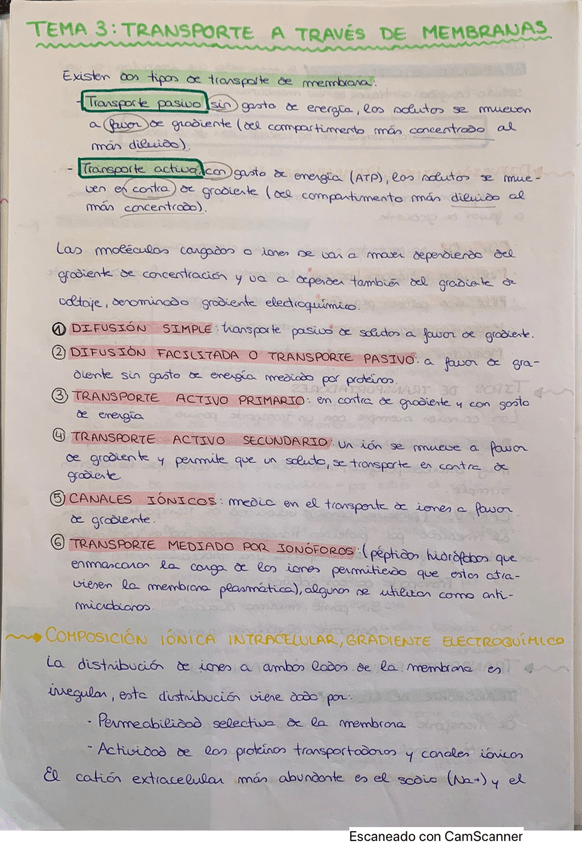 TEMA 3: TRANSPORTE A TRAVÉS DE MEMBRANAS
Existen dos tipos de transporte de membrana:
- Transporte pasivo sin gasto de energía, los solutos se mueven
a favor de gradiente (del compartimento más concentrado al
más diluido).
- Transporte activo con gasto de energía (ATP), los solutos se mue-
ven en contra de gradiente (del compartimento más diluido al
más concentrado).
Las moléculas cargadas o iones se van a mover dependiendo del
gradiente de concentración y va a depender también del gradiente de
voltaje, denominado gradiente electroquímico.
① DIFUSIÓN SIMPLE: transporte pasivo de solutos a favor de gradiente.
② DIFUSIÓN FACILITADA O TRANSPORTE PASIVO: a favor de gra-
diente sin gasto de energía mediado por proteínas
③ TRANSPORTE ACTIVO PRIMARIO: en contra de gradiente y con gasto
de energía
④ TRANSPORTE ACTIVO SECUNDARIO: un ión se mueve a favor
de gradiente y permite que un soluto, se transporte en contra de
gradiente
⑤ CANALES IÓNICOS: media en el transporte de iones a favor
de gradiente.
⑥ TRANSPORTE MEDIADO POR IONÓFOROS: (péptidos hidrófobos que
enmascaran la carga de los iones permitiendo que estos atra-
viesen la membrana plasmática), algunos se utilizan como anti-
microbianos.
COMPOSICIÓN IÓNICA INTRACELULAR, GRADIENTE ELECTROQUÍMICO
La distribución de iones a ambos lados de la membrana es
irregular, esta distribución viene dada por:
- Permeabilidad selectiva de la membrana
- Actividad de las proteínas transportadoras y canales iónicos
El catión extracelular más abundante es el sodio (Na+) y el
Escaneado con CamScanner